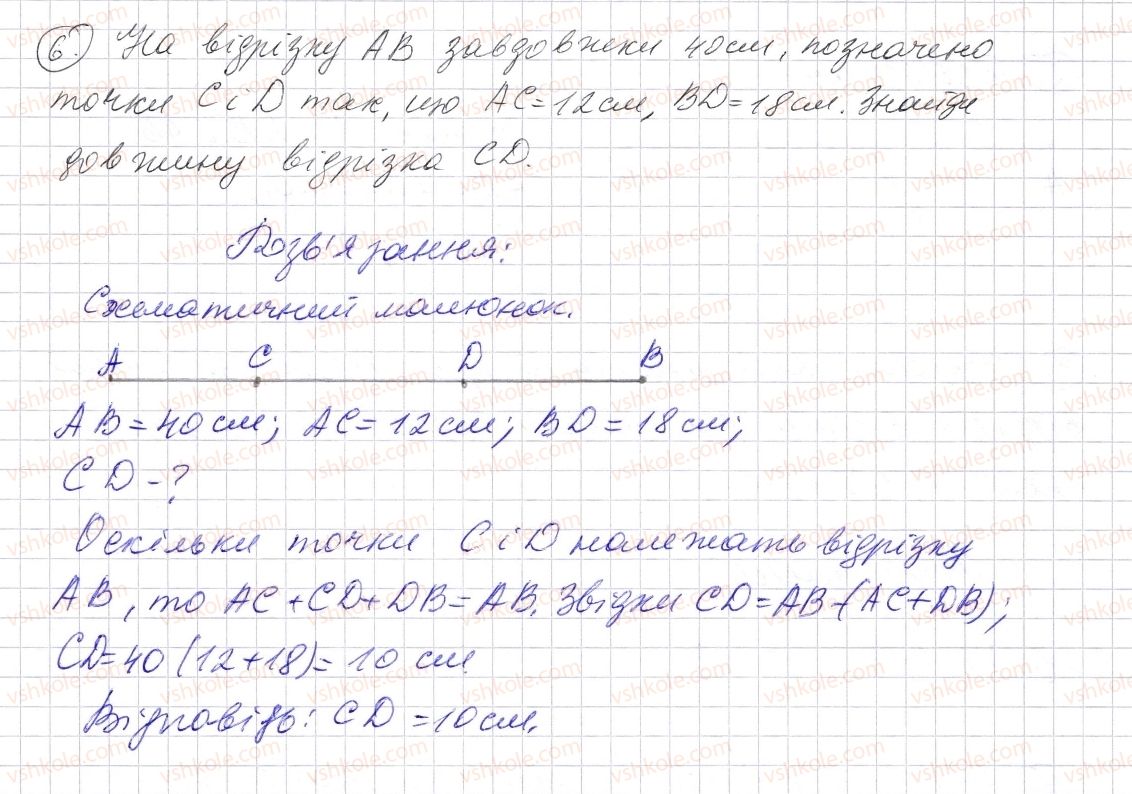 6. На відрізку AB завдовжки 40см, позначено
точки C і D так, що AC=12см, BD=18см. Знайди
довжину відрізка CD.
Розв'язання:
Схематичний малюнок.
A C D B
AB=40см; AC=12см; BD=18см;
CD-?
Оскільки точки C і D належать відрізку
AB, то AC+CD+DB=AB. Звідки CD=AB-(AC+DB);
CD=40 (12+18)=10 см
Відповідь: CD=10см.